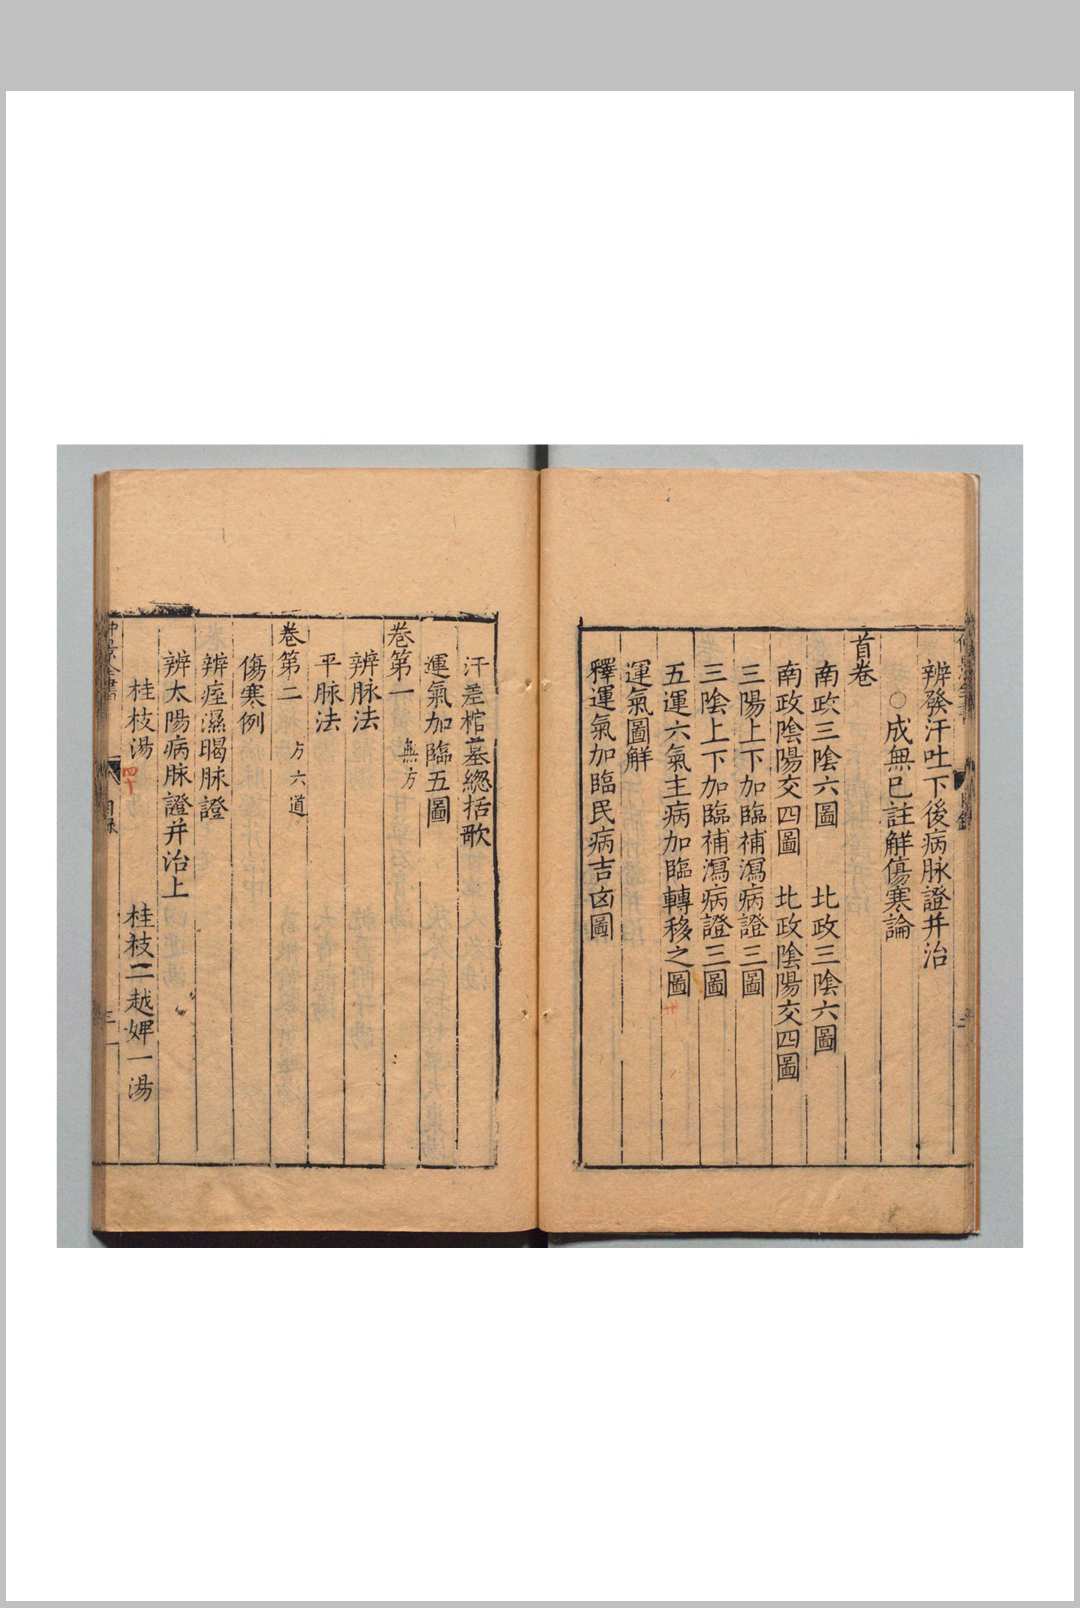 辨發汗吐下後病脉證并治
○成無已註解傷寒論
首卷
南政三陰六圖 北政三陰六圖
南政陰陽交四圖 北政陰陽交四圖
三陽上下加臨補瀉病證三圖
三陰上下加臨補瀉病證三圖
五運六氣主病加臨轉移之圖
運氣圖解
釋運氣加臨民病吉凶圖
汗差棺墓緫括歌
運氣加臨五圖
卷第一 無方
辨脉法
平脉法
卷第二 方六道
傷寒例
辨痓濕暍脉證
辨太陽病脉證并治上
桂枝湯 四十 桂枝二越婢一湯
目录